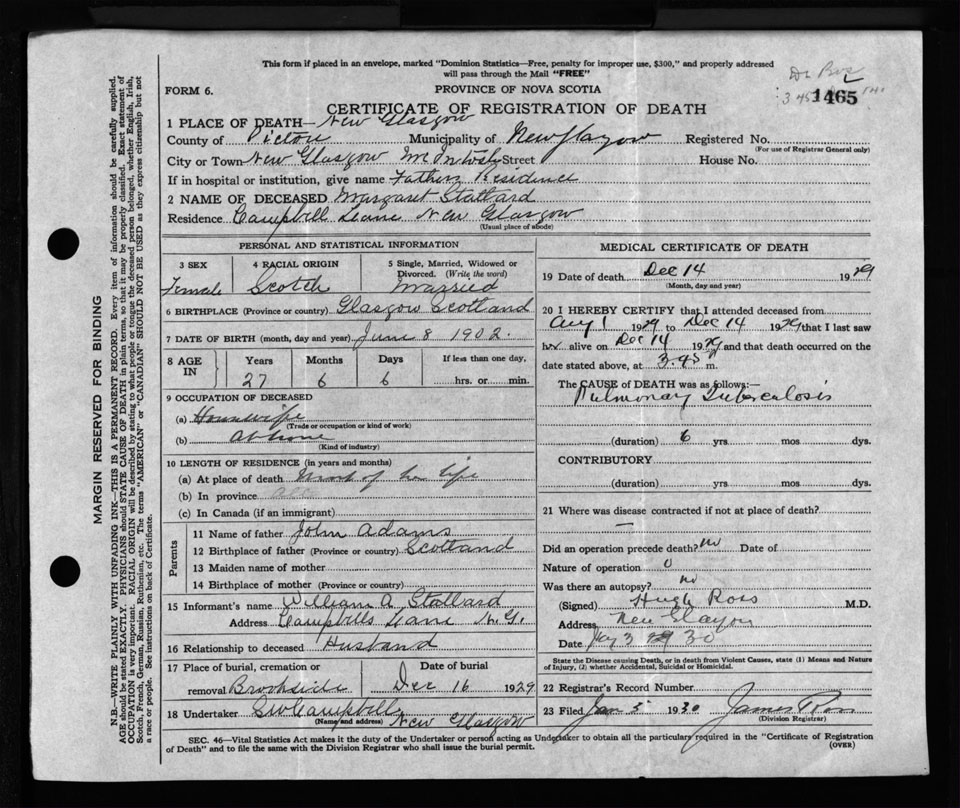 This form if placed in an envelope, marked "Dominion Statistics—Free, penalty for improper use, $300," and properly addressed
will pass through the Mail "FREE"
FORM 6.
PROVINCE OF NOVA SCOTIA
1465
CERTIFICATE OF REGISTRATION OF DEATH
1 PLACE OF DEATH— New Glasgow
County of Pictou Municipality of New Glasgow Registered No.
(For use of Registrar General only)
City or Town New Glasgow McIntosh Street House No.
If in hospital or institution, give name Fathers Residence
2 NAME OF DECEASED Margaret Stallard
Residence Campbell Lane New Glasgow
(Usual place of abode)
PERSONAL AND STATISTICAL INFORMATION
3 SEX Female
4 RACIAL ORIGIN Scotch
5 Single, Married, Widowed or
Divorced. (Write the word)
Married
6 BIRTHPLACE (Province or country) Glasgow Scotland
7 DATE OF BIRTH (month, day and year) June 8 1902.
8 AGE IN
Years Months Days If less than one day,
27 6 6 hrs. or min.
9 OCCUPATION OF DECEASED
(a) Housewife
(Trade or occupation or kind of work)
(b) at home
(Kind of industry)
10 LENGTH OF RESIDENCE (in years and months)
(a) At place of death Most of her life
(b) In province
(c) In Canada (if an immigrant)
Parents
11 Name of father John Adams
12 Birthplace of father (Province or country) Scotland
13 Maiden name of mother
14 Birthplace of mother (Province or country)
15 Informant's name William A Stallard
Address Campbells Lane N.G.
16 Relationship to deceased Husband
17 Place of burial, cremation or Date of burial
removal Brookside Dec 16 1929
18 Undertaker Campbell
(Name and address) New Glasgow
MEDICAL CERTIFICATE OF DEATH
19 Date of death Dec 14 1929
(Month, day and year)
20 I HEREBY CERTIFY that I attended deceased from
Aug 1 1929 to Dec 14 1929 that I last saw
her alive on Dec 14 1929 and that death occurred on the
date stated above, at 3.45 m.
The CAUSE of DEATH was as follows:—
Pulmonary Tuberculosis
(duration) 6 yrs mos dys.
CONTRIBUTORY
(duration) yrs mos dys.
21 Where was disease contracted if not at place of death?
—
Did an operation precede death? no Date of
Nature of operation 0
Was there an autopsy? no
(Signed) Hugh Ross M.D.
Address New Glasgow
Date 3 30
State the Disease causing Death, or in death from Violent Causes, state (1) Means and Nature
of Injury, (2) whether Accidental, Suicidal or Homicidal.
22 Registrar's Record Number
23 Filed Jan 5 1930 James Ross
(Division Registrar)
SEC. 46—Vital Statistics Act makes it the duty of the Undertaker or person acting as Undertaker to obtain all the particulars required in the "Certificate of Registration
of Death" and to file the same with the Division Registrar who shall issue the burial permit.
(OVER)
MARGIN RESERVED FOR BINDING
N.B.—WRITE PLAINLY WITH UNFADING INK—THIS IS A PERMANENT RECORD. Every item of information should be carefully supplied.
AGE should be stated EXACTLY. PHYSICIANS should STATE CAUSE OF DEATH in plain terms, so that it may be properly classified. Exact statement of
OCCUPATION is very important. RACIAL ORIGIN will be described by stating to what people or tongue the deceased person belonged, whether English, Irish,
Scotch, French, German, Russian, Ruthenian, etc. The terms "AMERICAN" or "CANADIAN" SHOULD NOT BE USED as they express citizenship but not
a race or people. See instructions on back of Certificate.